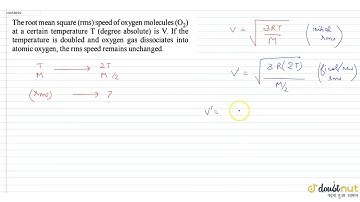 The root mean square (rms) speed of oxygen molecules (O₂)
at a certain temperature T (degree absolute) is V. If the
temperature is doubled and oxygen gas dissociates into
atomic oxygen, the rms speed remains unchanged.
T → 2T
M M/2
(rms) → ?
V = √(3RT/M) (initial rms)
V' = √(3R(2T)/(M/2)) (final/new rms)
V' =
doubtnut